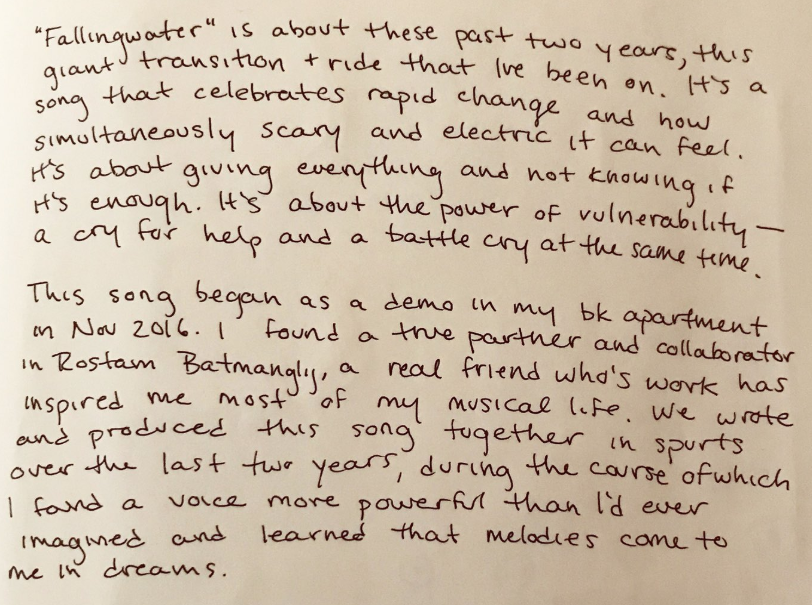 "Fallingwater" is about these past two years, this
giant transition + ride that Ive been on. It's a
song that celebrates rapid change and how
simultaneously scary and electric it can feel.
It's about giving everything and not knowing if
it's enough. It's about the power of vulnerability —
a cry for help and a battle cry at the same time.
This song began as a demo in my bk apartment
in Nov 2016. I found a true partner and collaborator
in Rostam Batmanglij, a real friend who's work has
inspired me most of my musical life. We wrote
and produced this song together in spurts
over the last two years, during the course of which
I found a voice more powerful than I'd ever
imagined and learned that melodies come to
me in dreams.